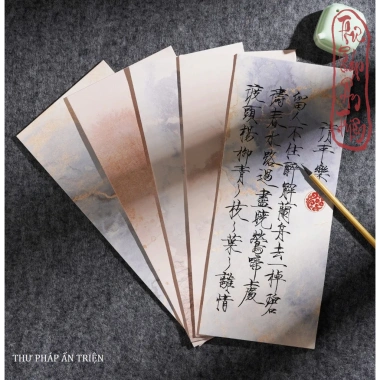 清平樂
留人不住醉解蘭舟去一棹碧
濤春水路過盡曉鶯啼處
渡頭楊柳青々枝々葉々離情
THƯ PHÁP ẤN TRIỆN